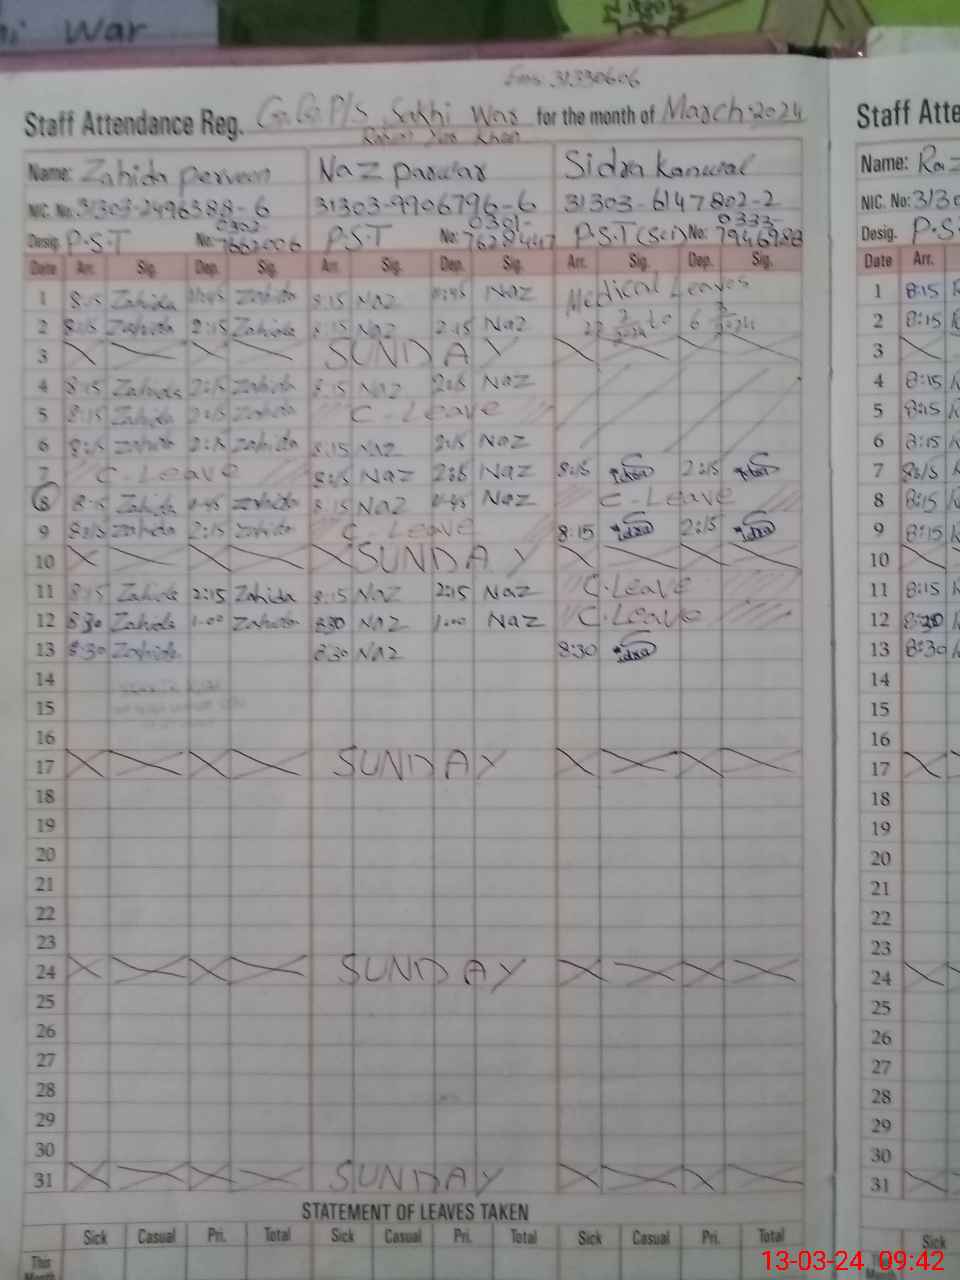 War
Ems. 31330606
Staff Attendance Reg. G.G.P/S Sakhi War for the month of March-2024
Rahim Yar Khan
Staff Atte
Name: Zahida perveen Naz parwar Sidra kanwal Name: Raz
NIC. No: 31303-2496388-6 31303-9906796-6 31303-6147802-2 NIC. No: 3130
Desig. P.S.T No: 0302-7662006 P.S.T No: 0301-7628447 P.S.T (Sci) No: 0333-7946988 Desig. P.S
Date Arr. Sig. Dep. Sig. Arr. Sig. Dep. Sig. Arr. Sig. Dep. Sig. Date Arr.
1 8:15 Zahida Zahida 8:15 Naz Naz Medical Leaves 1 8:15
2 8:15 Zahida 2:15 Zahida 8:15 Naz 2:15 Naz to 6 2 8:15
3 SUNDAY 3
4 8:15 Zahida 2:15 Zahida 8:15 Naz 2:15 Naz 4 8:15
5 8:15 Zahida 2:15 Zahida C-Leave 5 8:15
6 8:15 Zahida 2:15 Zahida 8:15 Naz 2:15 Naz 6 8:15
7 C-Leave 8:15 Naz 2:15 Naz 8:15 2:15 7 8:15
8 8:15 Zahida Zahida 8:15 Naz Naz C-Leave 8 8:15
9 8:15 Zahida 2:15 Zahida C-Leave 8:15 idra 2:15 idra 9 8:15
10 SUNDAY 10
11 8:15 Zahida 2:15 Zahida 8:15 Naz 2:15 Naz C-Leave 11 8:15
12 8:30 Zahida 1:00 Zahida 8:30 Naz 1:00 Naz C-Leave 12 8:30
13 8:30 Zahida 8:30 Naz 8:30 idra 13 8:30
14 14
15 15
16 16
17 SUNDAY 17
18 18
19 19
20 20
21 21
22 22
23 23
24 SUNDAY 24
25 25
26 26
27 27
28 28
29 29
30 30
31 SUNDAY 31
STATEMENT OF LEAVES TAKEN
Sick Casual Pri. Total Sick Casual Pri. Total Sick Casual Pri. Total Sick
This Month
13-03-24 09:42